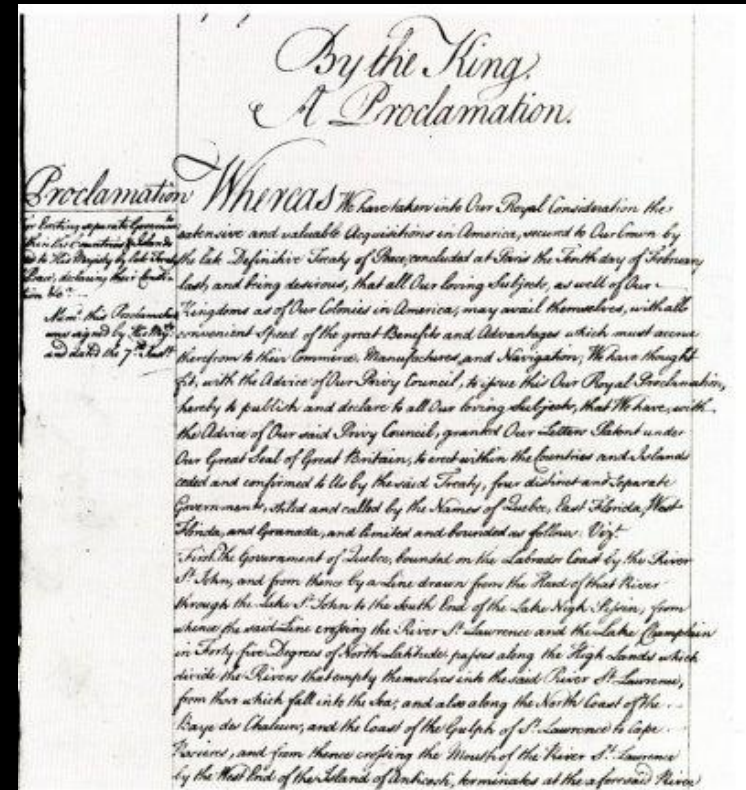 By the King,
A Proclamation.
Proclamation
for Erecting separate Governmts.
within the Countries & Islands
ceded to His Majesty by late Treaty
Peace, declaring their Constitu-
tion &c.
this Proclamation
was signed by His Maj.
and dated the 7th Inst.
Whereas We have taken into Our Royal Consideration the
extensive and valuable Acquisitions in America, secured to Our Crown by
the late Definitive Treaty of Peace, concluded at Paris the Tenth day of February
last, and being desirous, that all Our loving Subjects, as well of Our
Kingdoms as of Our Colonies in America, may avail themselves, with all
convenient Speed of the great Benefits and Advantages which must accrue
therefrom to their Commerce, Manufactures, and Navigation; We have thought
fit, with the Advice of Our Privy Council, to issue this Our Royal Proclamation,
hereby to publish and declare to all Our loving Subjects, that We have, with
the Advice of Our said Privy Council, granted Our Letters Patent under
Our Great Seal of Great Britain, to erect within the Countries and Islands
ceded and confirmed to Us by the said Treaty, four distinct and Separate
Governments, stiled and called by the Names of Quebec, East Florida, West
Florida, and Granada, and limited and bounded as follows; Vizt.
First. The Government of Quebec, bounded on the Labrador Coast by the River
St. John, and from thence by a Line drawn from the Head of that River
through the Lake St. John to the South End of the Lake Nigh Pissin; from
whence the said Line crossing the River St. Lawrence and the Lake Champlain
in Forty five Degrees of North Latitude, passes along the High Lands which
divide the Rivers that empty themselves into the said River St. Lawrence,
from those which fall into the Sea; and also along the North Coast of the
Baye des Chaleurs, and the Coast of the Gulph of St. Lawrence to Cape
Rosieres, and from thence crossing the Mouth of the River St. Lawrence
by the West End of the Island of Anticosti, terminates at the aforesaid River